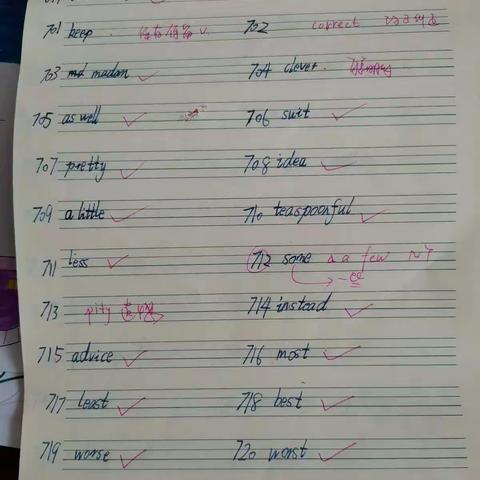 701 keep. 702 correct
703 madam 704 clever.
705 as well 706 suit
707 pretty 708 idea
709 a little 710 teaspoonful
711 less 712 some a few
713 pity 714 instead
715 advice 716 most
717 least 718 best
719 worse 720 worst